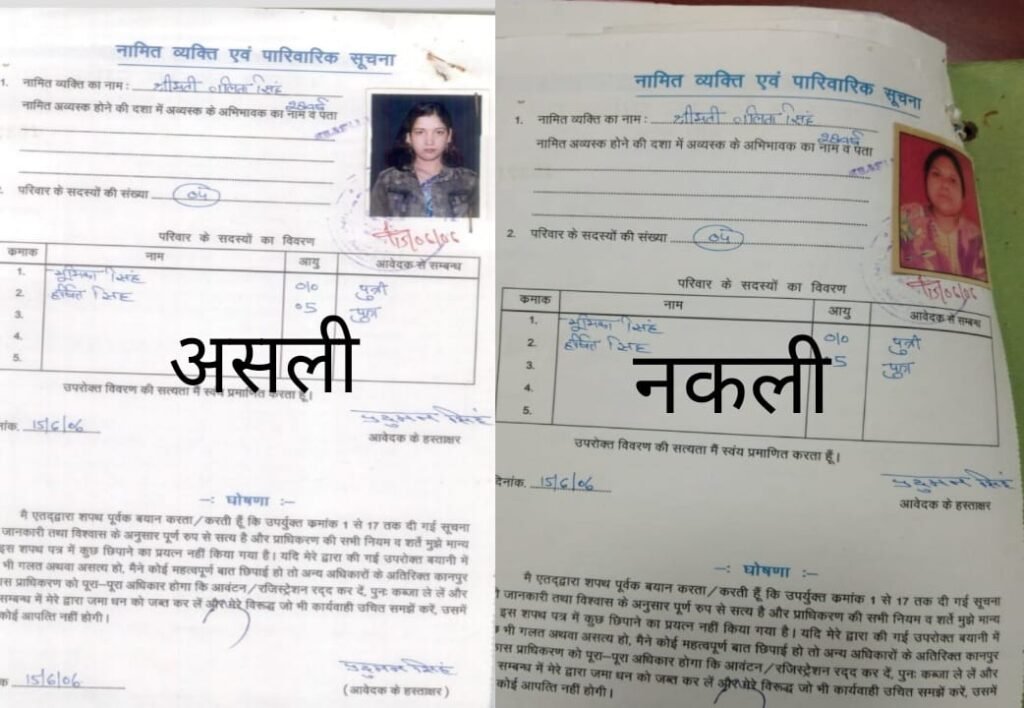 नामित व्यक्ति एवं पारिवारिक सूचना
1. नामित व्यक्ति का नाम : श्रीमती ललिता सिंह
28वर्ष
नामित अव्यस्क होने की दशा में अव्यस्क के अभिभावक का नाम व पता
परिवार के सदस्यों की संख्या 04
15/06/06
परिवार के सदस्यों का विवरण
क्रमाक नाम आयु आवेदक से सम्बन्ध
1. भूमिका सिंह 010 पुत्री
2. हर्षित सिंह 05 पुत्र
3.
4.
5.
असली
उपरोक्त विवरण की सत्यता मैं स्वंय प्रमाणित करता हूँ।
नांक. 15/6/06
आवेदक के हस्ताक्षर
-: घोषणा :-
मै एतद्द्वारा शपथ पूर्वक बयान करता/करती हूँ कि उपर्युक्त क्रमांक 1 से 17 तक दी गई सूचना
जानकारी तथा विश्वास के अनुसार पूर्ण रुप से सत्य है और प्राधिकरण की सभी नियम व शर्ते मुझे मान्य
इस शपथ पत्र में कुछ छिपाने का प्रयत्न नहीं किया गया है। यदि मेरे द्वारा की गई उपरोक्त बयानी में
भी गलत अथवा असत्य हो, मैने कोई महत्वपूर्ण बात छिपाई हो तो अन्य अधिकारों के अतिरिक्त कानपुर
ास प्राधिकरण को पूरा-पूरा अधिकार होगा कि आवंटन/रजिस्ट्रेशन रद्द कर दें, पुनः कब्जा ले लें और
सम्बन्ध में मेरे द्वारा जमा धन को जब्त कर लें और मेरे विरूद्ध जो भी कार्यवाही उचित समझें करें, उसमें
कोई आपत्ति नहीं होगी।
क 15/6/06
(आवेदक के हस्ताक्षर)
नामित व्यक्ति एवं पारिवारिक सूचना
1. नामित व्यक्ति का नाम : श्रीमती ललिता सिंह
28वर्ष
नामित अव्यस्क होने की दशा में अव्यस्क के अभिभावक का नाम व पता
2. परिवार के सदस्यों की संख्या 04
15/06/06
परिवार के सदस्यों का विवरण
क्रमाक नाम आयु आवेदक से सम्बन्ध
1. भूमिका सिंह 010 पुत्री
2. हर्षित सिंह 5 पुत्र
3.
4.
5.
नकली
उपरोक्त विवरण की सत्यता मैं स्वंय प्रमाणित करता हूँ।
दिनांक. 15/6/06
आवेदक के हस्ताक्षर
-: घोषणा :-
मै एतद्द्वारा शपथ पूर्वक बयान करता/करती हूँ कि उपर्युक्त क्रमांक 1 से 17 तक दी गई सूचना
जानकारी तथा विश्वास के अनुसार पूर्ण रुप से सत्य है और प्राधिकरण की सभी नियम व शर्ते मुझे मान्य
इस शपथ पत्र में कुछ छिपाने का प्रयत्न नहीं किया गया है। यदि मेरे द्वारा की गई उपरोक्त बयानी में
भी गलत अथवा असत्य हो, मैने कोई महत्वपूर्ण बात छिपाई हो तो अन्य अधिकारों के अतिरिक्त कानपुर
ास प्राधिकरण को पूरा-पूरा अधिकार होगा कि आवंटन/रजिस्ट्रेशन रद्द कर दें, पुनः कब्जा ले लें और
सम्बन्ध में मेरे द्वारा जमा धन को जब्त कर लें और मेरे विरूद्ध जो भी कार्यवाही उचित समझें करें, उसमें
कोई आपत्ति नहीं होगी।